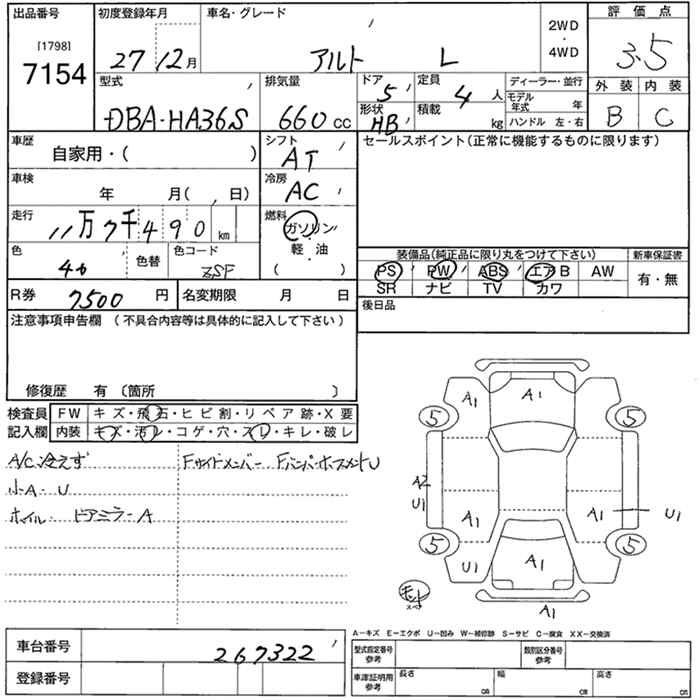 出品番号 初度登録年月 車名・グレード 2WD・4WD 評価点
[1798] 7154
27 12月 アルト L 3.5
型式 排気量 ドア 5 定員 4人 ディーラー・並行 外装 内装
DBA-HA36S 660cc 形状 HB 積載 kg モデル年式 年 ハンドル 左・右 B C
車歴 自家用・( ) シフト AT セールスポイント(正常に機能するものに限ります)
車検 年 月( , 日) 冷房 AC
走行 11万7千490km 燃料 ガソリン・軽・油 ( )
色 色替 色コード ZSF
装備品(純正品に限り丸をつけて下さい) 新車保証書
PS PW ABS エアB AW 有・無
SR ナビ TV カワ
R券 7500円 名変期限 月 日 後日品
注意事項申告欄 (不具合内容等は具体的に記入して下さい)
修復歴 有 〔箇所 〕
検査員記入欄 FW キズ・飛石・ヒビ割・リペア跡・X要
内装 キズ・汚レ・コゲ・穴・スレ・キレ・破レ
A/C冷えず Fサイドメンバー Fバンパ・ホースメントU
小A・U
ホイル・ドアミラーA
A1 A1
5 5
A2
U1
A1 A1 U1
5 5
U1 A1
A1
A―キズ E―エクボ U―凹み W―補修跡 S―サビ C―腐食 XX―交換済
車台番号 267322
登録番号
型式指定番号 参考 類別区分番号 参考
車庫証明用 参考 長さ cm 幅 cm 高さ cm